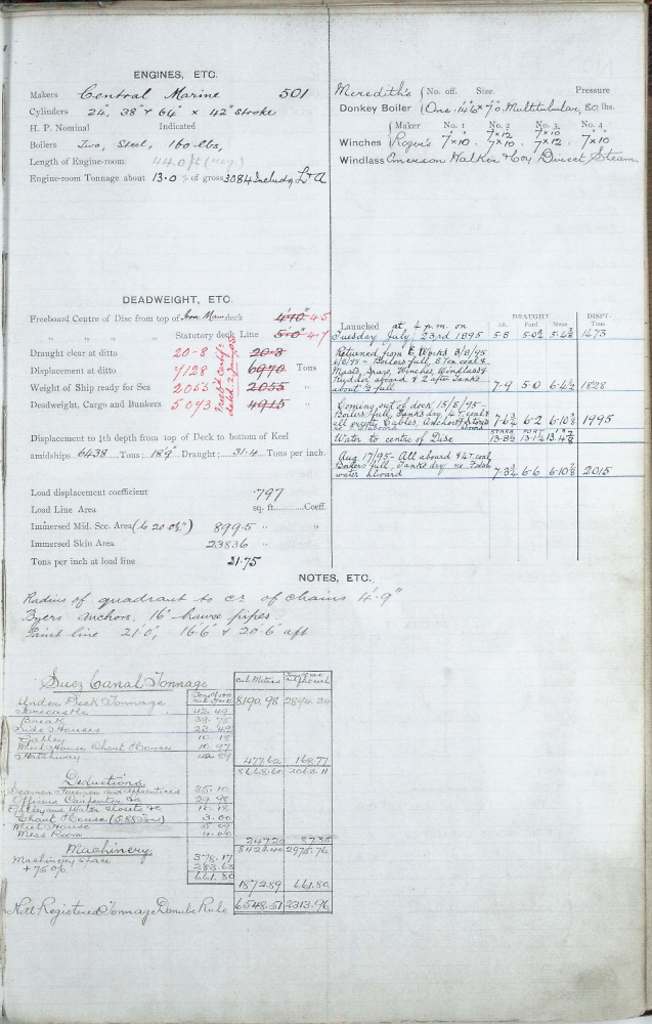 ENGINES, ETC.
Makers Central Marine 501
Cylinders 24", 38" & 64" × 42" stroke
H. P. Nominal Indicated
Boilers Two, Steel, 160 lbs,
Length of Engine-room 44.0 ft
Engine-room Tonnage about 13.0 % of gross 3084 Includg L & A
Meredith's No. off. Size. Pressure
Donkey Boiler One. 14'6" × 7'0 Multitubular, 80 lbs.
Maker No. 1 No. 2 No. 3. No. 4
7×12 7×10
Winches Roger's 7×10. 7×10. 7×12 7×10
Windlass Emerson Walker & Coy Direct Steam
DEADWEIGHT, ETC.
Freeboard Centre of Disc from top of Iron Main deck 4'10" 4-5
" " " " Statutory deck Line 5'0" 4-7
Draught clear at ditto 20-8 20-3
Displacement at ditto 7128 6970 Tons
Weight of Ship ready for Sea 2055 2055
Deadweight, Cargo and Bunkers 5073 4915
Displacement to ⅘th depth from top of Deck to bottom of Keel
amidships 6438 Tons: 18'9" Draught: 21.4 Tons per inch.
Load displacement coefficient .797
Load Line Area sq. ft. Coeff.
Immersed Mid. Sec. Area (to 20.0½") 899.5 " "
Immersed Skin Area 23836 "
Tons per inch at load line 21.75
DRAUGHT DISPT.
Aft. Ford Mean Tons
Launched at 4 p.m. on
Tuesday July, 23rd 1895 5-8 1473
Returned from E. Works 3/8/95
Boilers full, 8 Ton coal &
Masts, Winches, Windlass &
Rudder aboard & 2 after Tanks
about ½ full 7-9 5-0 6-4½ 1828
Coming out of dock 15/8/95-
Boilers full, Tanks dry, coal &
all except Cables, Anchors & Stores
7-6¾ 6-2 6-10⅜ 1995
Water to centre of Disc 13-8½ 13-1¼ 13-4⅞
Aug 17/95- All aboard coal,
Boilers full, Tanks dry no Fresh
water aboard 7-3¾ 6-6 6-10⅞ 2015
NOTES, ETC.
Radius of quadrant to cr of chains 4'-9"
Byers anchors, 16" hawse pipes.
Paint line 21'0", 16'6" & 20'-6" aft
Suez Canal Tonnage
Under Deck Tonnage 8190.98 2894.34
Forecastle 42.49
Break 38.75
Side Houses 23.49
Galley 10.18
Wheel House Chart House 10.97
Hatchway 42.89
477.62 168.77
8668.60 3063.11
Deductions
Seamen Firemen and Apprentices 35.10
Officers Carpenter &c 29.98
Galley and Water Closets &c
Chart House 3.00
Wheel House
Mess Room
247.20 87.35
8421.40 2975.76
Machinery
Machinery Space 378.17
+ 75% 283.63
661.80
1872.89 661.80
Nett Registered Tonnage Danube Rule 6548.51 2313.96